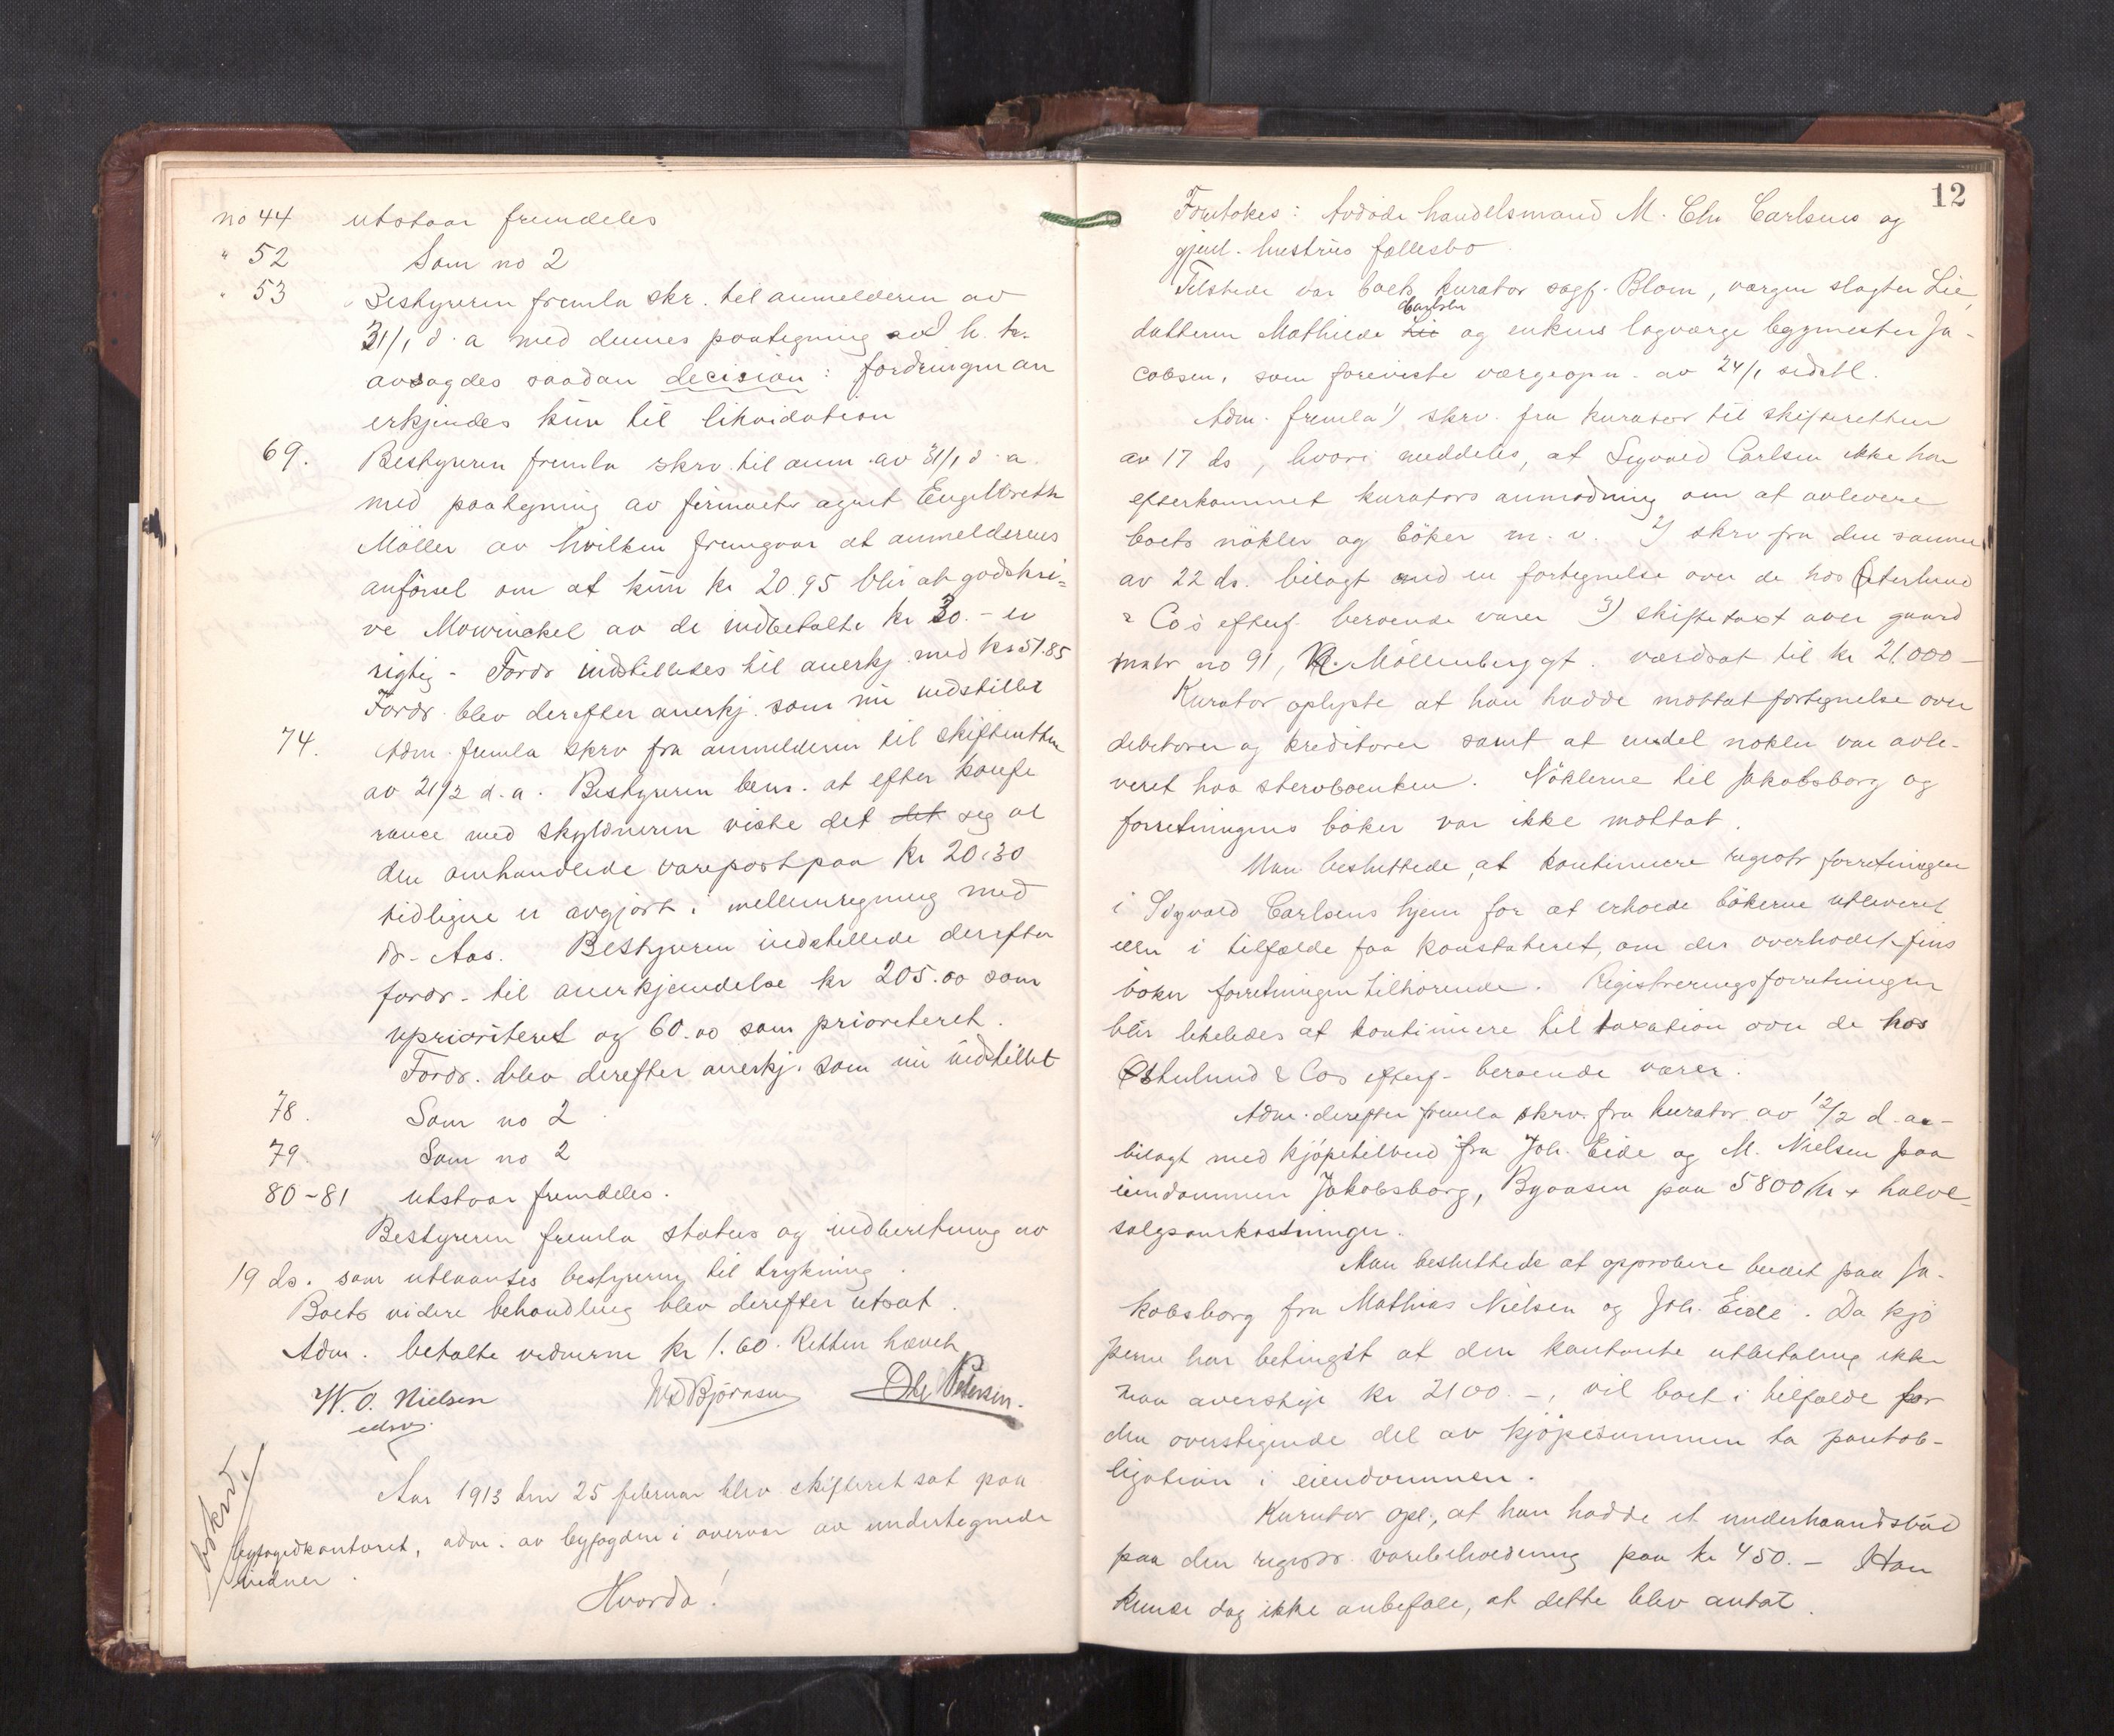 no 44 utstaar fremdeles
" 52 Som no 2
" 53 Bestyreren fremla skr. til anmelderen av
31/1 d. a med dennes paategning ad h. tr.
avsagdes saadan decision: fordringen an
erkjendes kun til likvidation
69. Bestyreren fremla skrv. til anm. av 31/1 d. a.
med paategning av firmaets agent Engelbreth
Möller av hvilken fremgaar at anmelderens
anförsel om at kun kr 20.95 blir at godskri=
ve Mowinckel av de indbetalte kr 30.- er
rigtig - Fordr indstilledes til anerkj. med kr 51.85
Fordr. blev derefter anerkj. som nu indstillet
74. Adm. fremla skrv fra anmelderen til skifteretten
av 21/2 d. a. Bestyreren bem. at efter konfe
rance med skyldneren viste det det seg at
den omhandlede varepost paa kr 20.30
tidligere er avgjort i mellemregning med
dr. Aas. Bestyreren indstillede derefter
fordr. til anerkjendelse kr 205.00 som
uprioritert og 60.00 som prioriteret.
Fordr. blev derefter anerkj. som nu indstillet
78. Som no 2
79. Som no 2
80-81 utstaar fremdeles.
Bestyreren fremla status og indberetning av
19 ds. som utlaantes bestyreren til trykning.
Boets videre behandling blev derefter utsat.
Adm. betalte vidnerne kr 1.60. Retten hævet
W. O. Nielsen
edsv.
Björnsen Ole Petersen.
Aar 1913 den 25 februar blev skifteret sat paa
byfogedkontoret, adm. av byfogden i overvær av undertegnede
vidner.
Hvorda!
12
Foretokes: Avdöde handelsmand M. Chr Carlsens og
gjenl. hustrus fællesbo.
Tilstede var boets kurator sagf. Blom, værgen slagter Lie,
Carlsen
datteren Mathilde Lie og enkens lagværge bygmester Ja-
cobsen, som foreviste værgeopn. av 24/1 sidstl.
Adm. fremla 1) skrv. fra kurator til skifteretten
av 17 ds, hvori meddeles, at Sigvald Carlsen ikke har
efterkommet kurators anmodning om at avlevere
boets nökler og böker m. v. 2) skrv fra den samme
av 22 ds. bilagt med en fortegnelse over de hos Österlund
& Co's efterf. beroende varer 3) skiftetaxt over gaard
matr no 91, N. Möllenberg gt. værdsat til kr 21.000 -
Kurator oplyste at han hadde mottat fortegnelse over
debitorer og kreditorer samt at endel nökler var avle-
veret hos stervboenken. Nöklerne til Jakobsborg og
forretningens böker var ikke mottat.
Man besluttede, at kontinuere registr forretningen
i Sigvald Carlsens hjem for at erholde bökerne utleveret
eller i tilfælde faa konstateret, om der overhodet fins
böker forretningen tilhörende. Registreringsforretningen
blir likeledes at kontinuere til taxation over de hos
Österlund & Cos efterf. beroende varer.
Adm. derefter fremla skrv. fra kurator av 12/2 d. a. -
bilagt med kjöpetilbud fra Joh. Eide og M. Nielsen paa
eiendommen Jakobsborg, Byaasen paa 5800 kr + halve
salgsomkostninger.
Man besluttede at approbere budet paa Ja-
kobsborg fra Mathias Nielsen og Joh. Eide. Da kjö
perne har betinget at den kontante utbetaling ikke
maa overstige kr 2100.-, vil boet i tilfælde for
den overstigende del av kjöpesummen ta pantob-
ligation i eiendommen.
Kurator opl., at han hadde et underhaandsbud
paa den registr. varebeholdning paa kr 450.- Han
kunde dog ikke anbefale, at dette blev antat.